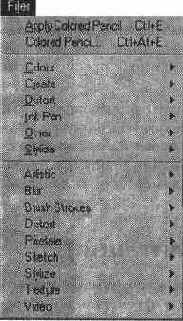 Filter
Apply Colored Pencil Ctrl+E
Colored Pencil... Ctrl+Alt+E
Colour
Create
Distort
Ink Pen
Stylize
Artistic
Blur
Brush Strokes
Distort
Pixelate
Sketch
Stylize
Texture
Video